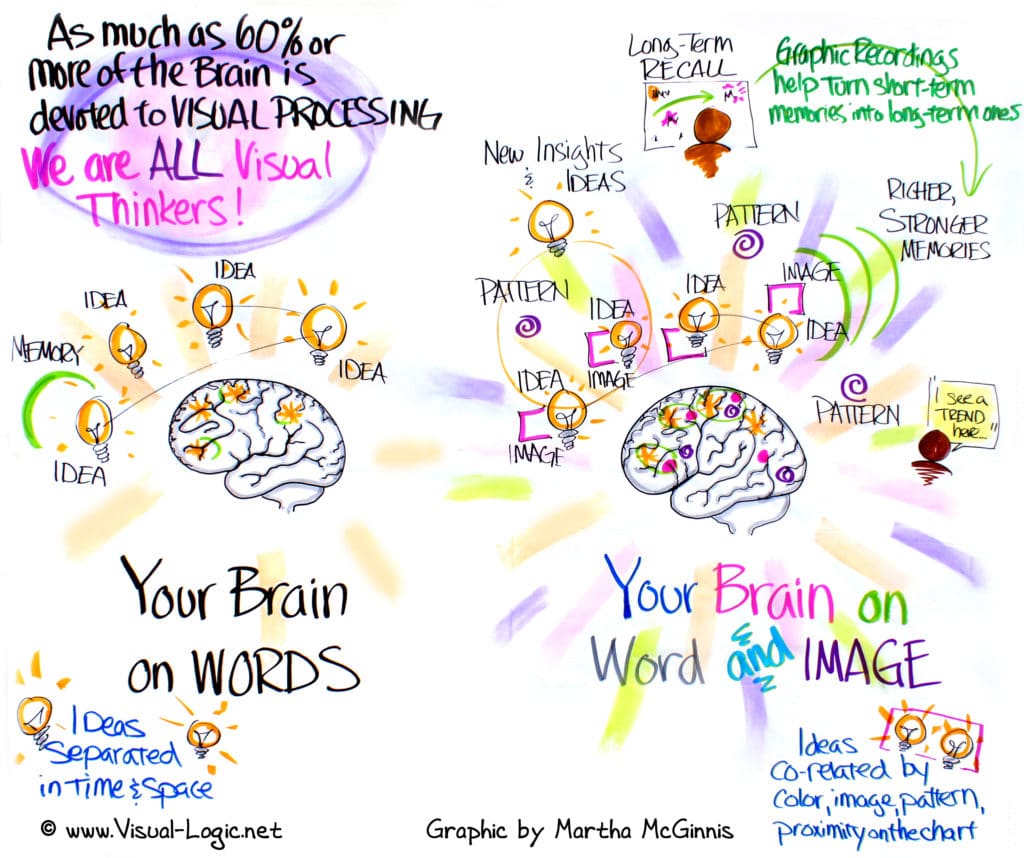 As much as 60% or
more of the Brain is
devoted to VISUAL PROCESSING
We are ALL Visual
Thinkers!
IDEA
IDEA
MEMORY
IDEA
IDEA
Your Brain
on WORDS
Ideas
Separated
in Time & Space
Long-Term
RECALL
Graphic Recordings
help Turn short-term
memories into long-term ones
New Insights
& IDEAS
RICHER,
STRONGER
MEMORIES
PATTERN
IMAGE
PATTERN
IDEA
IDEA
IDEA
IMAGE
IDEA
IMAGE
PATTERN
"I see a
TREND
here..."
Your Brain on
Word and IMAGE
Ideas
co-related by
color, image, pattern,
proximity on the chart
© www.Visual-Logic.net
Graphic by Martha McGinnis